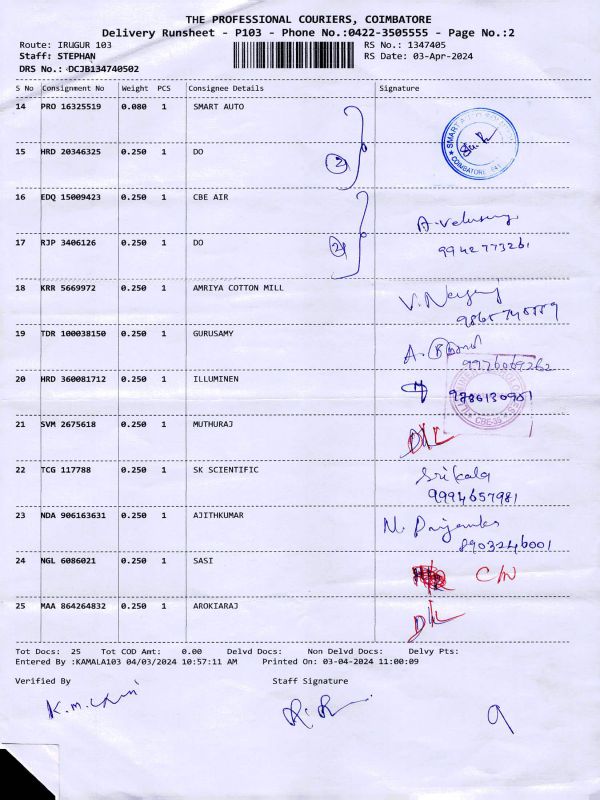 THE PROFESSIONAL COURIERS, COIMBATORE
Delivery Runsheet - P103 - Phone No.:0422-3505555 - Page No.:2
Route: IRUGUR 103
RS No.: 1347405
Staff: STEPHAN
RS Date: 03-Apr-2024
DRS No.: DCJB134740502
S No Consignment No Weight PCS Consignee Details Signature
14 PRO 16325519 0.080 1 SMART AUTO
15 HRD 20346325 0.250 1 DO
2
16 EDQ 15009423 0.250 1 CBE AIR
A. Velusamy
17 RJP 3406126 0.250 1 DO
2
9942773261
18 KRR 5669972 0.250 1 AMRIYA COTTON MILL
19 TDR 100038150 0.250 1 GURUSAMY
9976069262
20 HRD 360081712 0.250 1 ILLUMINEN
9786130901
21 SVM 2675618 0.250 1 MUTHURAJ
D/L
22 TCG 117788 0.250 1 SK SCIENTIFIC
Srikala
9994657981
23 NDA 906163631 0.250 1 AJITHKUMAR
8903246001
24 NGL 6086021 0.250 1 SASI
C/N
25 MAA 864264832 0.250 1 AROKIARAJ
D/L
Tot Docs: 25 Tot COD Amt: 0.00 Delvd Docs: Non Delvd Docs: Delvy Pts:
Entered By :KAMALA103 04/03/2024 10:57:11 AM Printed On: 03-04-2024 11:00:09
Verified By
Staff Signature
9